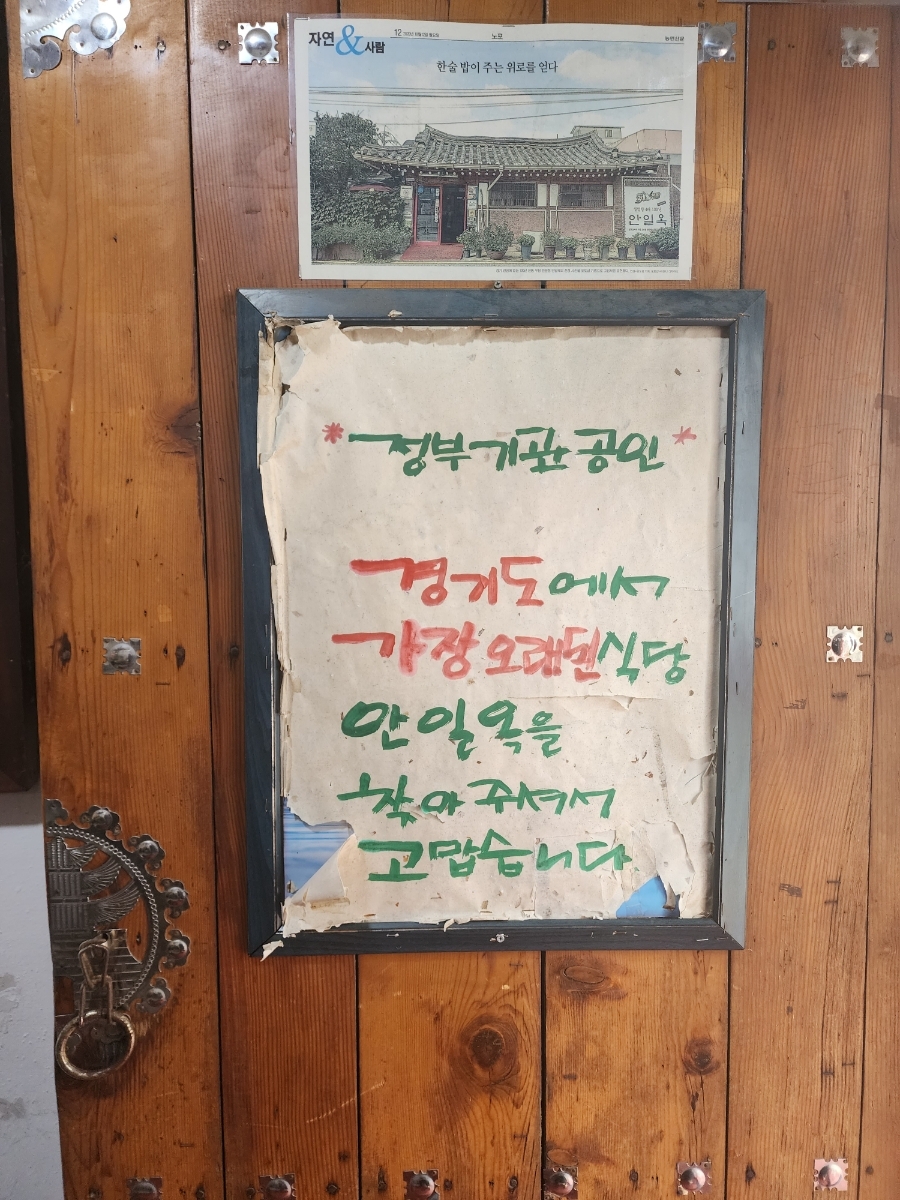 자연 & 사람
12
노포
농민신문
한술 밥이 주는 위로를 얻다
안일옥
*정부기관 공인*
경기도에서
가장 오래된식당
안일옥을
찾아주셔서
고맙습니다